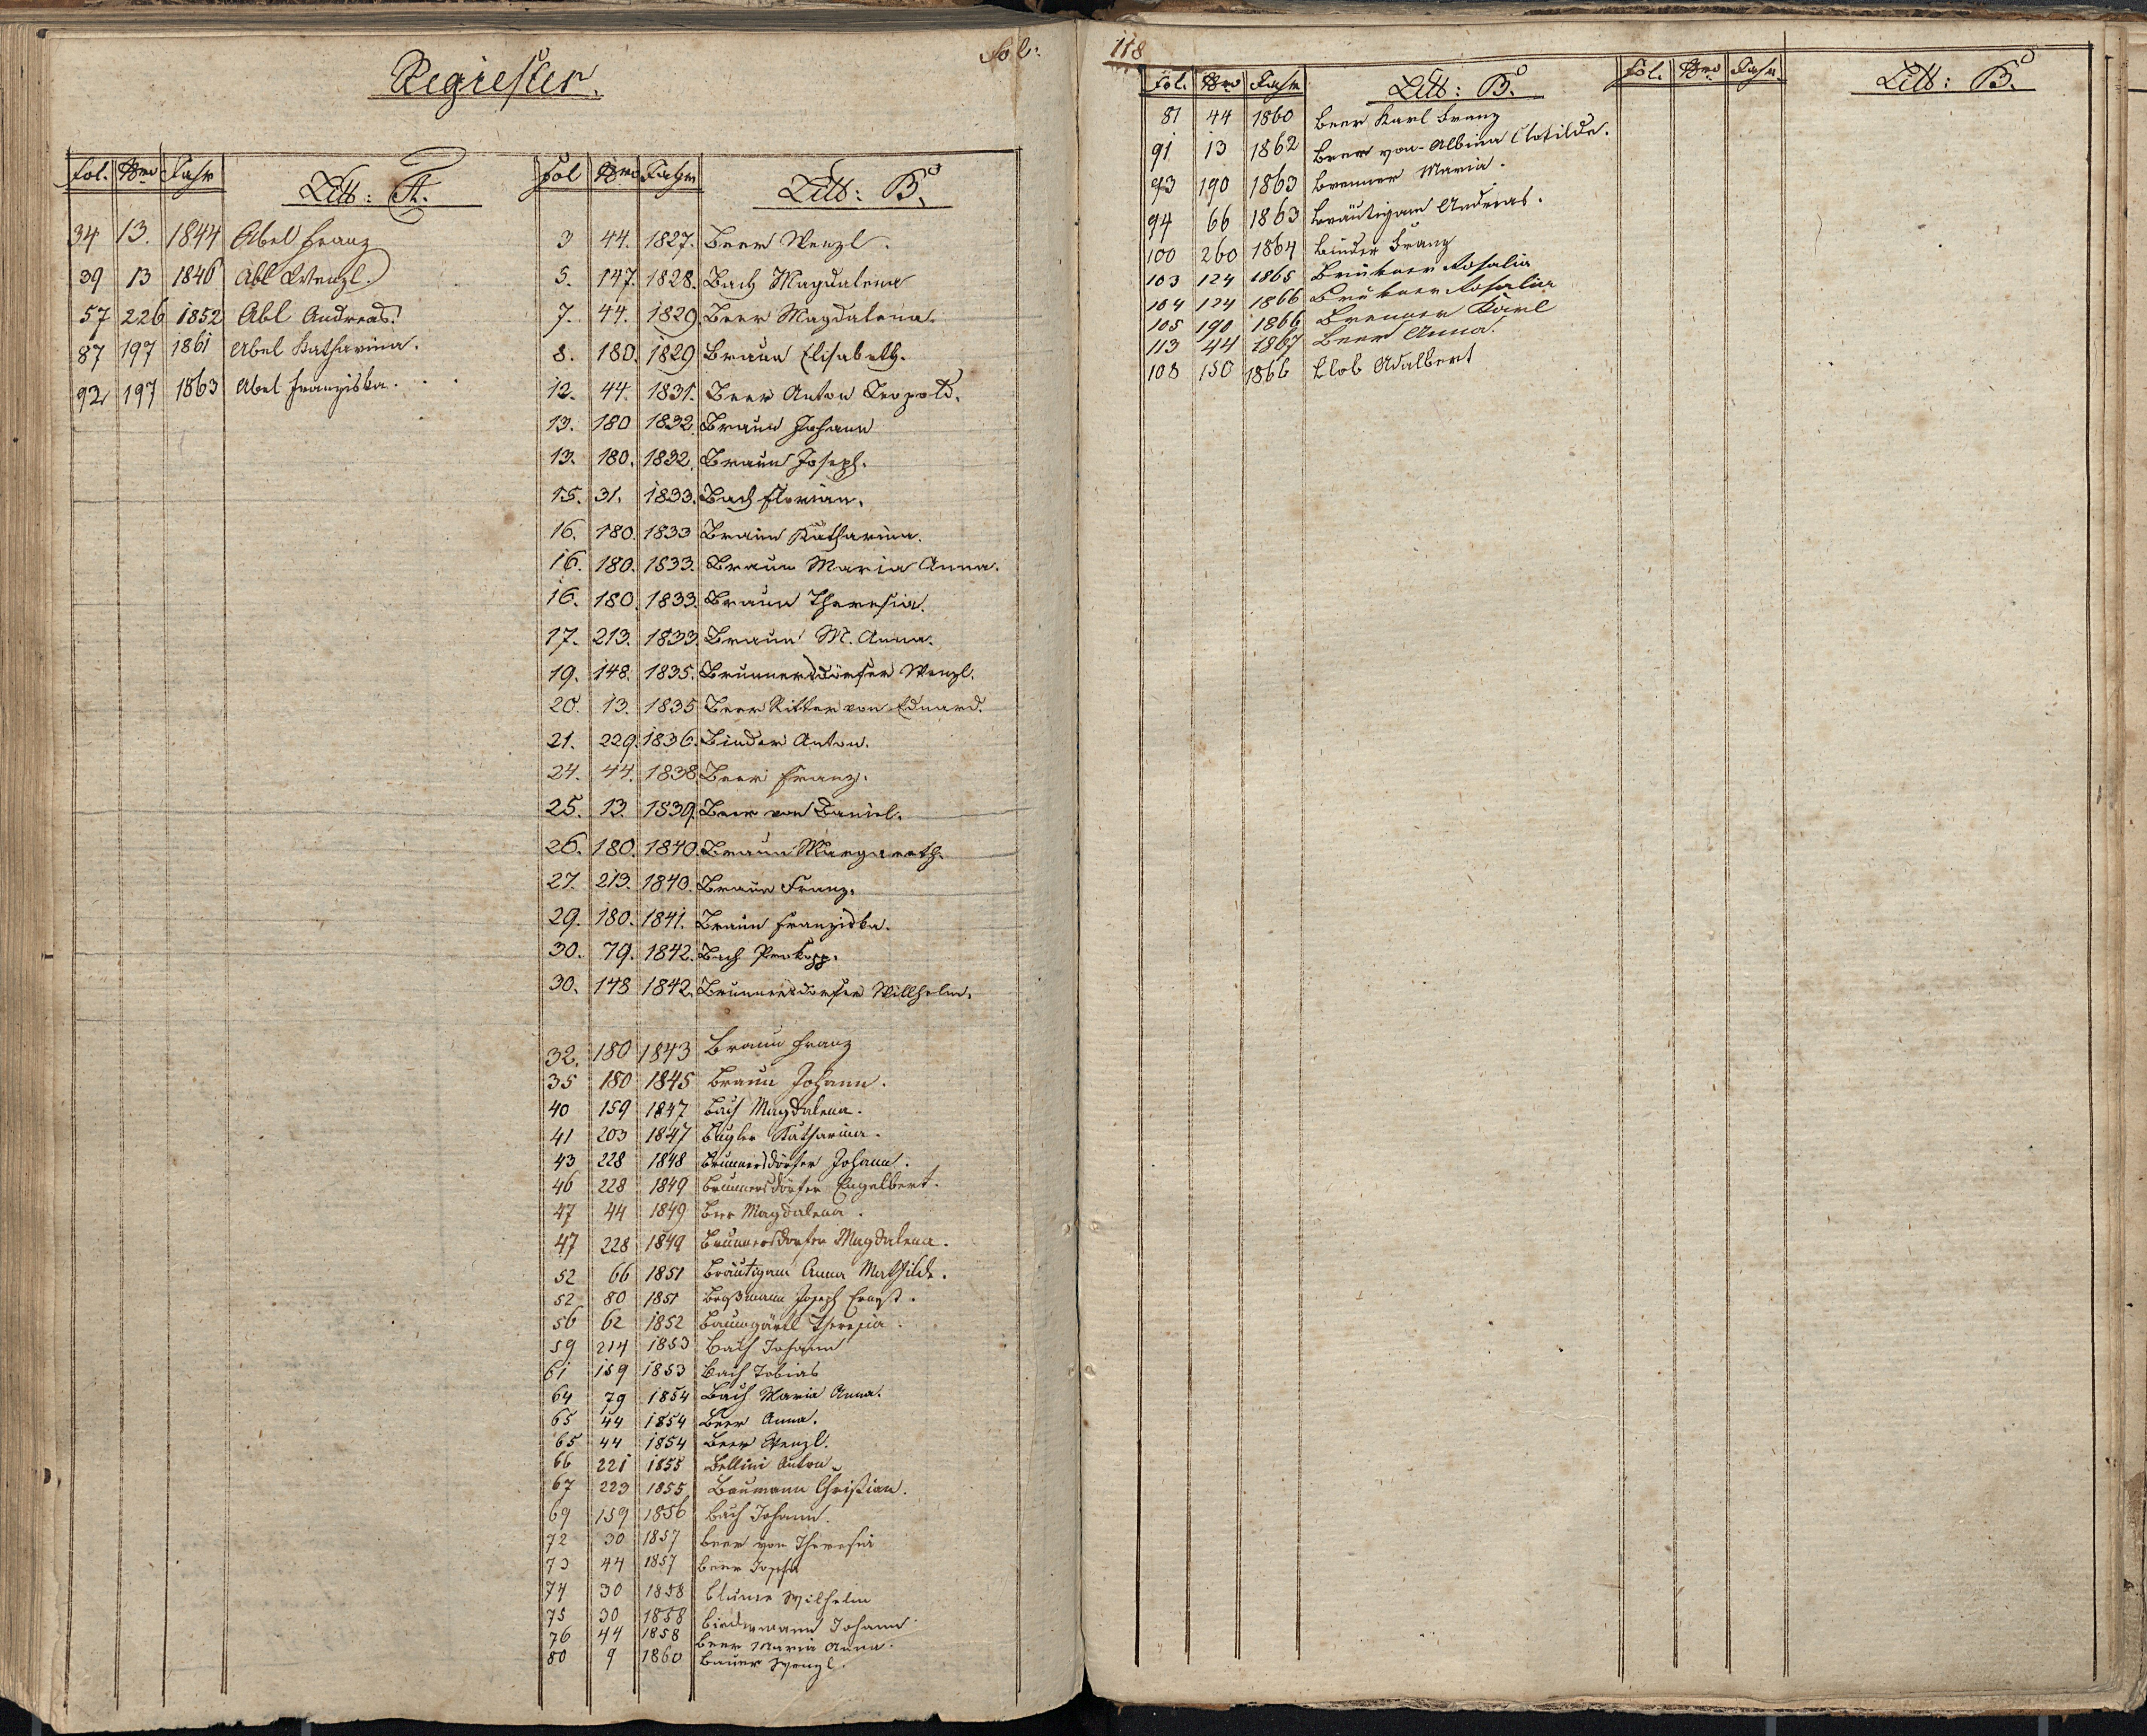 Register.
Fol: 118
Fol. Nro Jahr Litt: A.
34 13. 1844 Abel Franz
39 13 1846 Abl Wenzl.
57 226 1852 Abl Andreas.
87 197 1861 Abel Katharina.
92 197 1863 Abel Franziska.
Fol Nro Jahr Litt: B.
3 44. 1827. Beer Wenzl.
5. 147. 1828. Bach Magdalena
7. 44. 1829. Beer Magdalena.
8. 180. 1829 Braun Elisabeth.
12. 44. 1831. Beer Anton Leopold.
13. 180 1832. Braun Johann
13. 180. 1832. Braun Joseph.
15. 31. 1833. Bach Florian.
16. 180. 1833 Braun Katharina.
16. 180. 1833. Braun Maria Anna.
16. 180. 1833. Braun Theresia.
17. 213. 1833. Braun M. Anna.
19. 148. 1835. Brunnersdörfer Wenzl.
20. 13. 1835 Beer Ritter von Eduard.
21. 229. 1836. Binder Anton.
24. 44. 1838. Beer Franz.
25. 13. 1839. Beer von Daniel.
26. 180. 1840. Braun Margareth.
27. 213. 1840. Braun Franz.
29. 180. 1841. Braun Franziska.
30. 79. 1842. Bach Prokopp.
30. 148 1842. Brunnersdorfer Willhelm.
32. 180 1843 Braun Franz
35 180 1845 Braun Johann.
40 159 1847 Bach Magdalena.
41 203 1847 Katharina.
43 228 1848 Brunnersdörfer Johann.
46 228 1849 Brunnersdörfer Engelbert.
47 44 1849 Beer Magdalena.
47 228 1849 Brunnersdorfer Magdalena.
52 66 1851 Bräutigam Anna Mathilde.
52 80 1851 Joseph Ernst.
56 62 1852 Baumgärtl Theresia.
59 214 1853 Bach Johann
61 159 1853 Bach Tobias
64 79 1854 Bach Maria Anna.
65 44 1854 Beer Anna.
65 44 1854 Beer Wenzl.
66 221 1855 Bellini Anton
67 223 1855 Baumann Christian.
69 159 1856 Bach Johann.
72 30 1857 Beer von Theresia
73 44 1857 Beer Josefa
74 30 1858 Blume Wilhelm
75 30 1858 Biedermann Johann
76 44 1858 Beer Maria Anna.
80 9 1860 Bauer Wenzl.
Fol. Nro Jahr Litt: B.
81 44 1860 Beer Karl Franz
91 13 1862 Beer von Albina Clotilde.
93 190 1863 Brenner Maria.
94 66 1863 Bräutigam Andreas.
100 260 1864 Binder Franz
103 124 1865 Brükner Rosalia
104 124 1866 Brükner Rosalia
105 190 1866 Brenner Karl
113 44 1867 Beer Anna.
108 150 1866 Adalbert
Fol. Nro Jahr Litt: B.